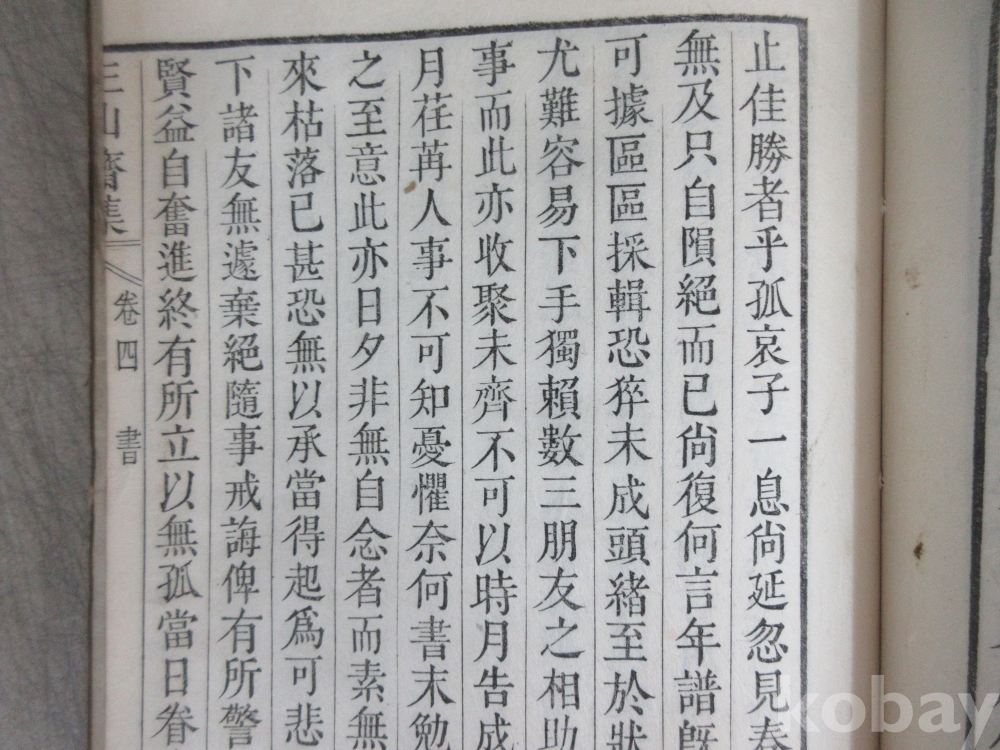 止佳勝者乎孤哀子一息尙延忽見春
無及只自隕絕而已尙復何言年譜旣
可據區區採輯恐猝未成頭緖至於狀
尤難容易下手獨賴數三朋友之相助
事而此亦收聚未齊不可以時月告成
月荏苒人事不可知憂懼奈何書末勉
之至意此亦日夕非無自念者而素無
來枯落已甚恐無以承當得起爲可悲
下諸友無遽棄絕隨事戒誨俾有所警
賢益自奮進終有所立以無孤當日眷
山齋集 卷四 書
kobay